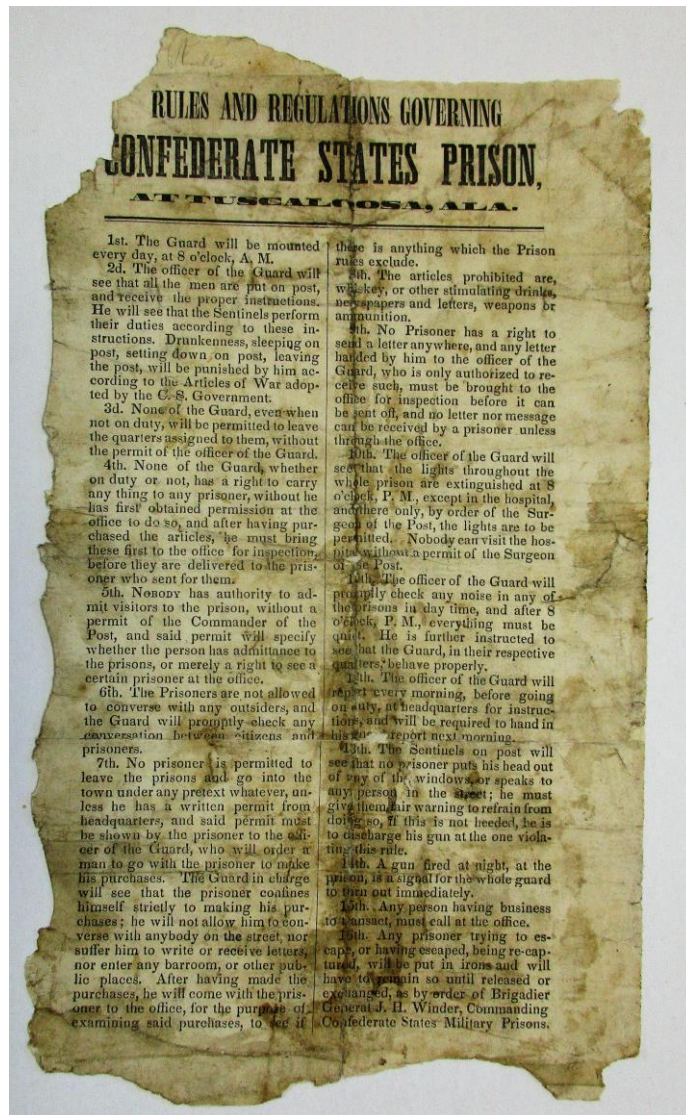 RULES AND REGULATIONS GOVERNING
CONFEDERATE STATES PRISON,
AT TUSCALOOSA, ALA.
1st. The Guard will be mounted
every day, at 8 o'clock, A. M.
2d. The officer of the Guard will
see that all the men are put on post,
and receive the proper instructions.
He will see that the Sentinels perform
their duties according to these in-
structions. Drunkenness, sleeping on
post, setting down on post, leaving
the post, will be punished by him ac-
cording to the Articles of War adop-
ted by the C. S. Government.
3d. None of the Guard, even when
not on duty, will be permitted to leave
the quarters assigned to them, without
the permit of the officer of the Guard.
4th. None of the Guard, whether
on duty or not, has a right to carry
any thing to any prisoner, without he
has first obtained permission at the
office to do so, and after having pur-
chased the articles, he must bring
these first to the office for inspection,
before they are delivered to the pris-
oner who sent for them.
5th. NOBODY has authority to ad-
mit visitors to the prison, without a
permit of the Commander of the
Post, and said permit will specify
whether the person has admittance to
the prisons, or merely a right to see a
certain prisoner at the office.
6th. The Prisoners are not allowed
to converse with any outsiders, and
the Guard will promptly check any
conversation between citizens and
prisoners.
7th. No prisoner is permitted to
leave the prisons and go into the
town under any pretext whatever, un-
less he has a written permit from
headquarters, and said permit must
be shown by the prisoner to the offi-
cer of the Guard, who will order a
man to go with the prisoner to make
his purchases. The Guard in charge
will see that the prisoner confines
himself strictly to making his pur-
chases; he will not allow him to con-
verse with anybody on the street, nor
suffer him to write or receive letters,
nor enter any barroom, or other pub-
lic places. After having made the
purchases, he will come with the pris-
oner to the office, for the purpose of
examining said purchases, to see if
there is anything which the Prison
rules exclude.
8th. The articles prohibited are,
whiskey, or other stimulating drinks,
newspapers and letters, weapons or
ammunition.
9th. No Prisoner has a right to
send a letter anywhere, and any letter
handed by him to the officer of the
Guard, who is only authorized to re-
ceive such, must be brought to the
office for inspection before it can
be sent off, and no letter nor message
can be received by a prisoner unless
through the office.
10th. The officer of the Guard will
see that the lights throughout the
whole prison are extinguished at 8
o'clock, P. M., except in the hospital,
and there only, by order of the Sur-
geon of the Post, the lights are to be
permitted. Nobody can visit the hos-
pital without a permit of the Surgeon
of the Post.
11th. The officer of the Guard will
promptly check any noise in any of
the prisons in day time, and after 8
o'clock, P. M., everything must be
quiet. He is further instructed to
see that the Guard, in their respective
quarters, behave properly.
12th. The officer of the Guard will
report every morning, before going
on duty, at headquarters for instruc-
tions, and will be required to hand in
his report next morning.
13th. The Sentinels on post will
see that no prisoner puts his head out
of any of the windows, or speaks to
any person in the street; he must
give them fair warning to refrain from
doing so, if this is not heeded, he is
to discharge his gun at the one viola-
ting this rule.
14th. A gun fired at night, at the
prison, is a signal for the whole guard
to turn out immediately.
15th. Any person having business
to transact, must call at the office.
16th. Any prisoner trying to es-
cape, or having escaped, being re-cap-
tured, will be put in irons and will
have to remain so until released or
exchanged, as by order of Brigadier
General J. H. Winder, Commanding
Confederate States Military Prisons.